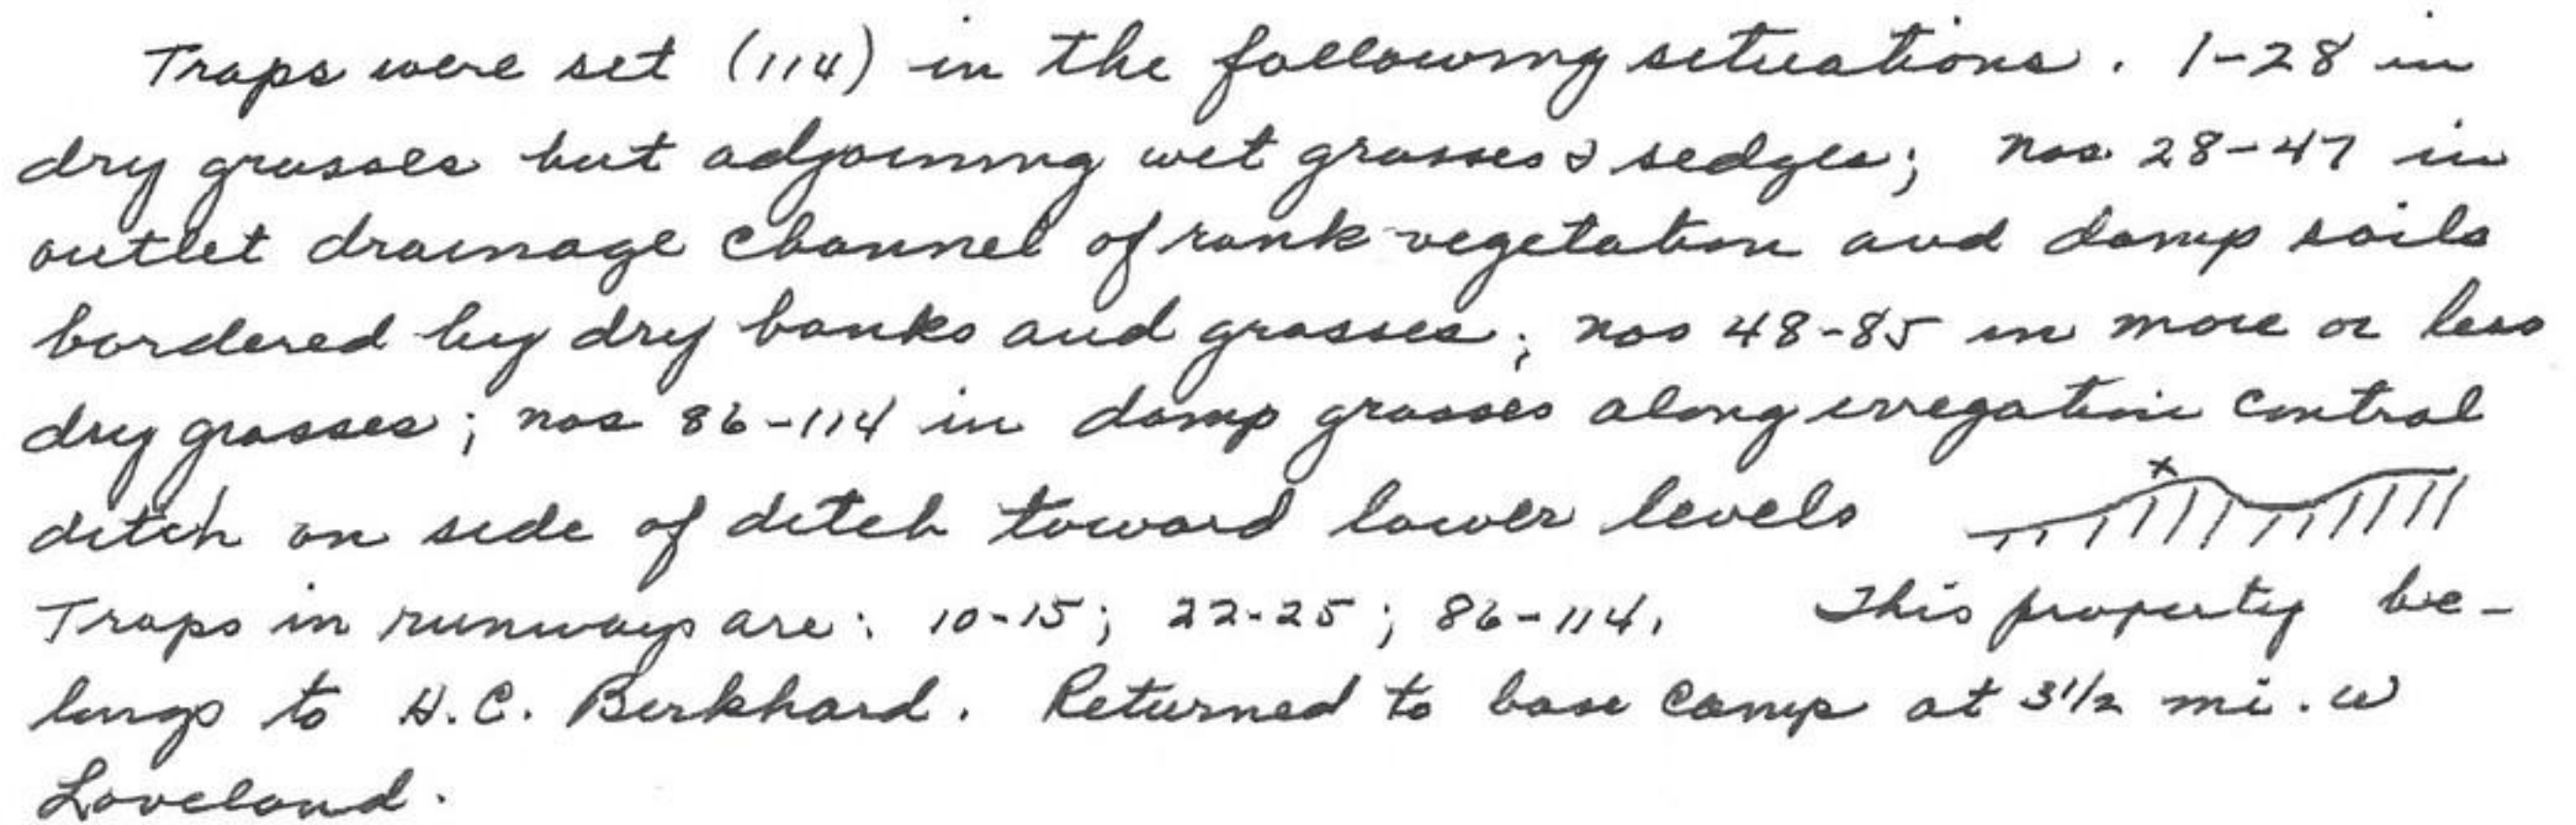 Traps were set (114) in the following situations. 1-28 in
dry grasses but adjoining wet grasses & sedges; nos. 28-47 in
outlet drainage channel of rank vegetation and damp soils
bordered by dry banks and grasses; nos 48-85 in more or less
dry grasses; nos 86-114 in damp grasses along irregation control
ditch on side of ditch toward lower levels x
Traps in runways are: 10-15; 22-25; 86-114. This property be-
longs to H.C. Berkhard. Returned to base camp at 3 1/2 mi. W
Loveland.